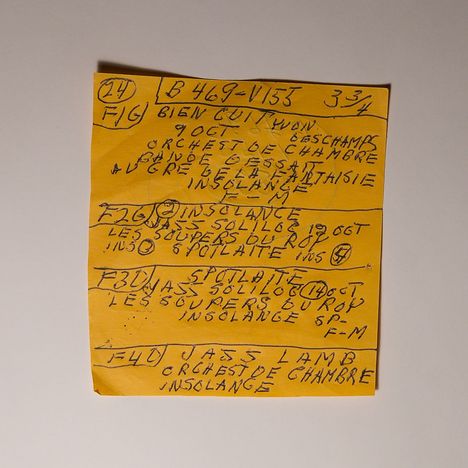 24 B 469-V155 3 3/4
F1G BIEN CUIT WON
9 OCT DESCHAMPS
ORCHEST DE CHAMBRE
BANDE DESSAIT
AU GRE DE LA FANTAISIE
INSOLANGE
F-M
F2G 2 INSOLANCE
JASS SOLILOG 12 OCT
LES SOUPERS DU ROY
INS SPOTLAITE INS
F3D SPOTLAITE
JASS SOLILOG 14 OCT
LES SOUPERS DU ROY
INSOLANGE SP-
F-M
F4D JASS LAMB
ORCHEST DE CHAMBRE
INSOLANGE